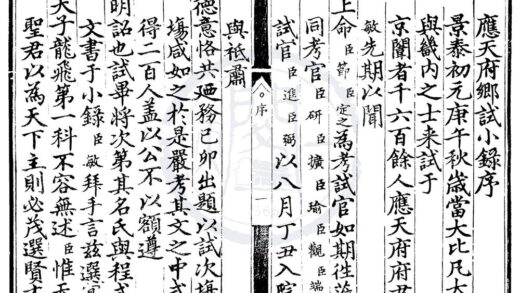 應天府鄉試小錄序
景泰初元庚午秋歲當大比凡太
與畿内之士来試于
京闈者千六百餘人應天府府尹
敏先期以聞
上命臣節臣定之為考試官如期徃莅
同考官臣研臣擴臣瑜臣觀臣端
試官臣進臣弼以八月丁丑入院
序
一
與祗肅
德意恪共廼務己卯出題以試次塲
塲咸如之於是嚴考其文之中式
得二百人盖以公不以額遵
明詔也試畢將次第其名氏與程式
文書于小錄臣敏拜手言兹選實
天子龍飛第一科不容無述臣惟天
聖君以為天下主則必茂選賢士